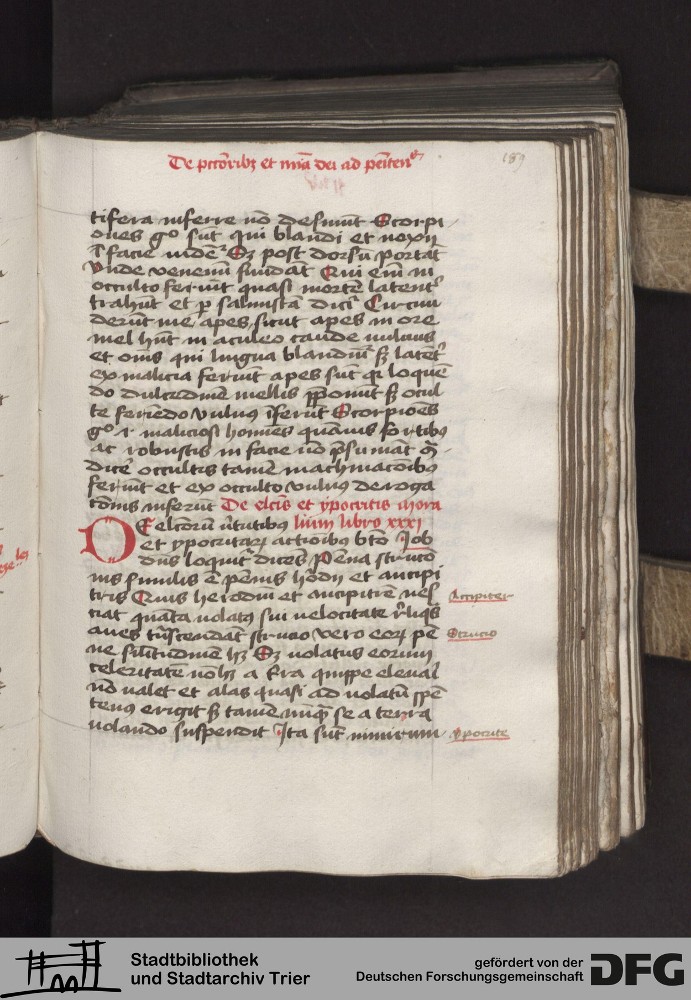 De pctōribꝫ et mīa dei ad peīten
189
tifera inferre nō desinūt Scorpi
ones gͦ sūt qui blandi et noxij
ī facie vident Sꝫ post dorsū portāt
vnde venenū fundāt Qui eīm in
occulto feriūt quasi mortē latent
trahūt et p̄ salmistā dicit̄ Circum
derūt me apes sicut apes in ore
mel hn̄t in aculeo caude vulnus
et om̄s qui lingua blandiūt sꝫ latent̄
ex malicia feriūt apes sūt qꝛ loquē
do dulcedinē mellis p̄ponūt sꝫ occul
te feriēdo vulnus īferūt Scorpiōes
gͦ ⁊ maliciosi homīes quāuis fortibꝰ
ac robustis in facie nō p̄sumāt
dicē occultis tamē machinacōibꝰ
feriūt et ex occulto vulnus deroga
cōnis inferūt De elcīs et ypocritis mora
liūm libro xxxi
DE elcorū v̄tutibus
et ypocritaꝝ actioībus bt̄o Job
dn̄s loquit̄ dicēs Pēna strucō
nis similis ē pēnis h̄odij et ancipi
tris Quis herodiū et ancipitrē nes
ciat quāta volatꝰ sui velocitate r̄liqͣs
aues trāscendāt strucio vero eoꝝ pē
ne similitudinē hꝫ Sꝫ volatus eorum
celeritatē nō hꝫ a t̄ra quippe eleuari
nō valet et alas quasi ad volatū spē
tenus erigit sꝫ tamē nūqͣ se a terra
volando suspendit Ita sūt nimirum
Accipiter
Strucio
ypocrite
Stadtbibliothek
und Stadtarchiv Trier
gefördert von der
Deutschen Forschungsgemeinschaft
DFG